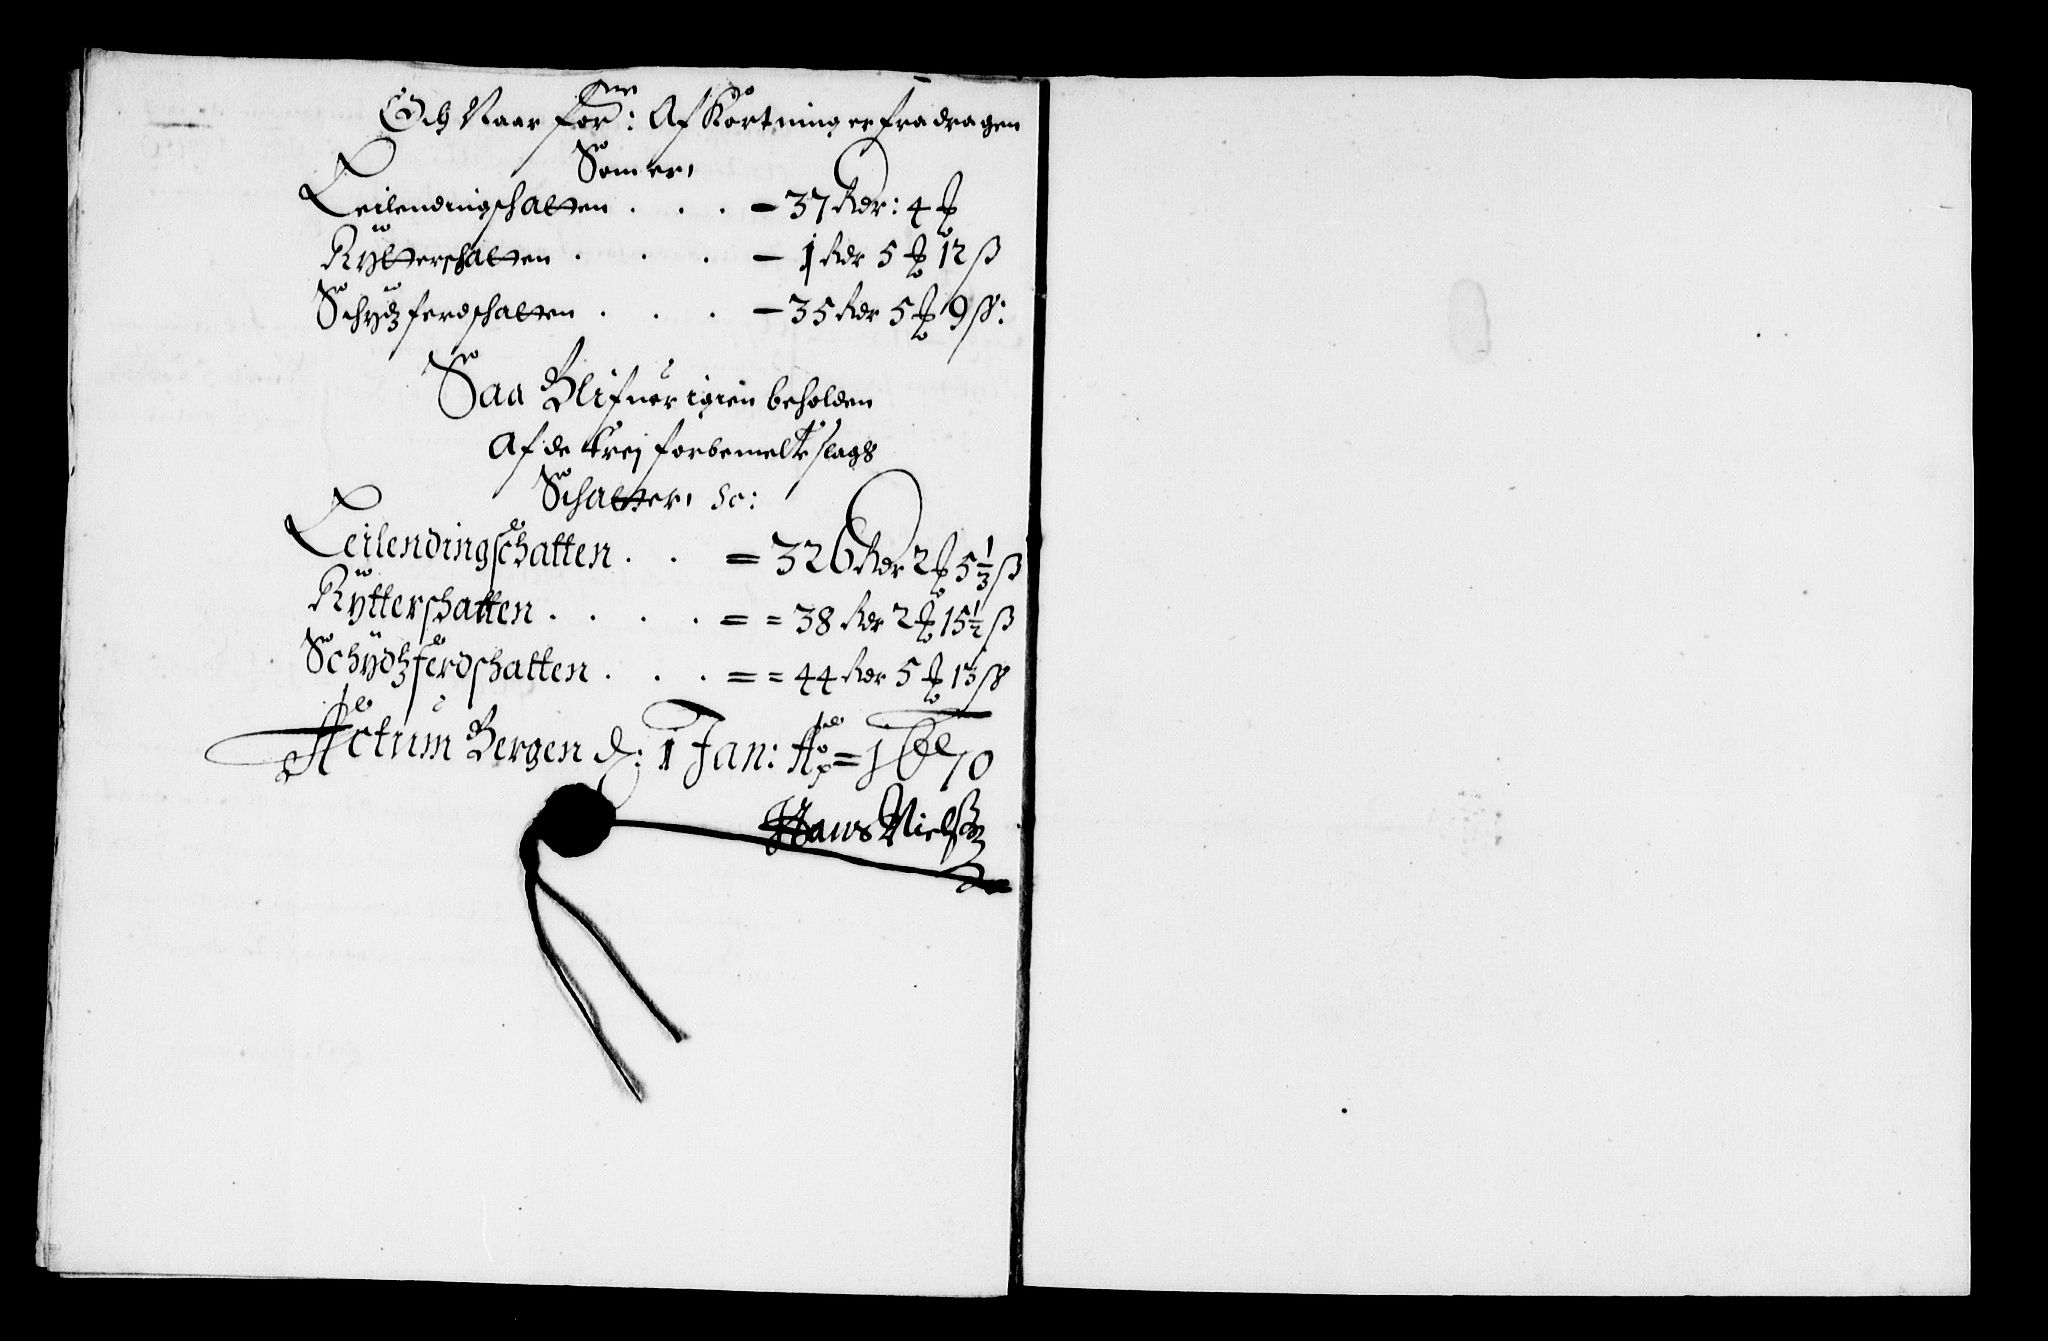 Och Naar for:ne Af Kortning er fradragen
Som er,
Leilendingschatten . . . - 37 Rdr: 4 ₰
Rytterschatten . . . - 1 Rdr 5 ₰ 12 ß
Schydzferdschatten . . . - 35 Rdr 5 ₰ 9 ß:
Saa Blifuer igien beholden
Af de trej forbemelte slags
Schatter, Sc:
Leilendingschatten . . = 326 Rdr 2 ₰ 5 1/3 ß
Rytterschatten . . . . = = 38 Rdr 2 ₰ 15 1/2 ß
Schydzferdschatten . . . = = 44 Rdr 5 ₰ 13 ß
Actum Bergen d: 1 Jan: Ao = 1670
Hans Nielsøn